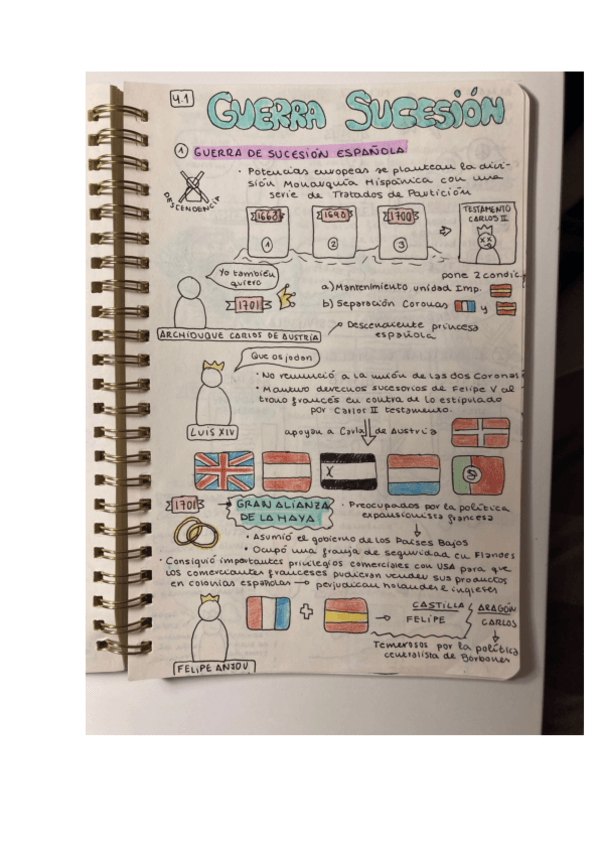 4.1
GUERRA SUCESIÓN
1 GUERRA DE SUCESIÓN ESPAÑOLA
· Potencias europeas se plantean la divi-
sión Monarquía Hispánica con una
serie de Tratados de Partición
DESCENDENCIA
1668 1698 1700
1 2 3
TESTAMENTO
CARLOS II
pone 2 condic.
a) Mantenimiento unidad Imp.
b) Separación Coronas y
Yo también
quiero
1701
ARCHIDUQUE CARLOS DE AUSTRIA
Descendiente princesa
española
Que os jodan
· No renunció a la unión de las dos Coronas
· Mantuvo derechos sucesorios de Felipe V al
trono francés en contra de lo estipulado
por Carlos II testamento.
LUIS XIV
apoyan a Carlos de Austria
1701
GRAN ALIANZA
DE LA HAYA
· Preocupados por la política
expansionista francesa
· Asumió el gobierno de los Países Bajos
· Ocupó una franja de seguridad en Flandes
· Consiguió importantes privilegios comerciales con USA para que
los comerciantes franceses pudieran vender sus productos
en colonias españolas → perjudican holandes e ingleses
+
CASTILLA
FELIPE
ARAGÓN
CARLOS
Temerosos por la política
centralista de Borbones
FELIPE ANJOU